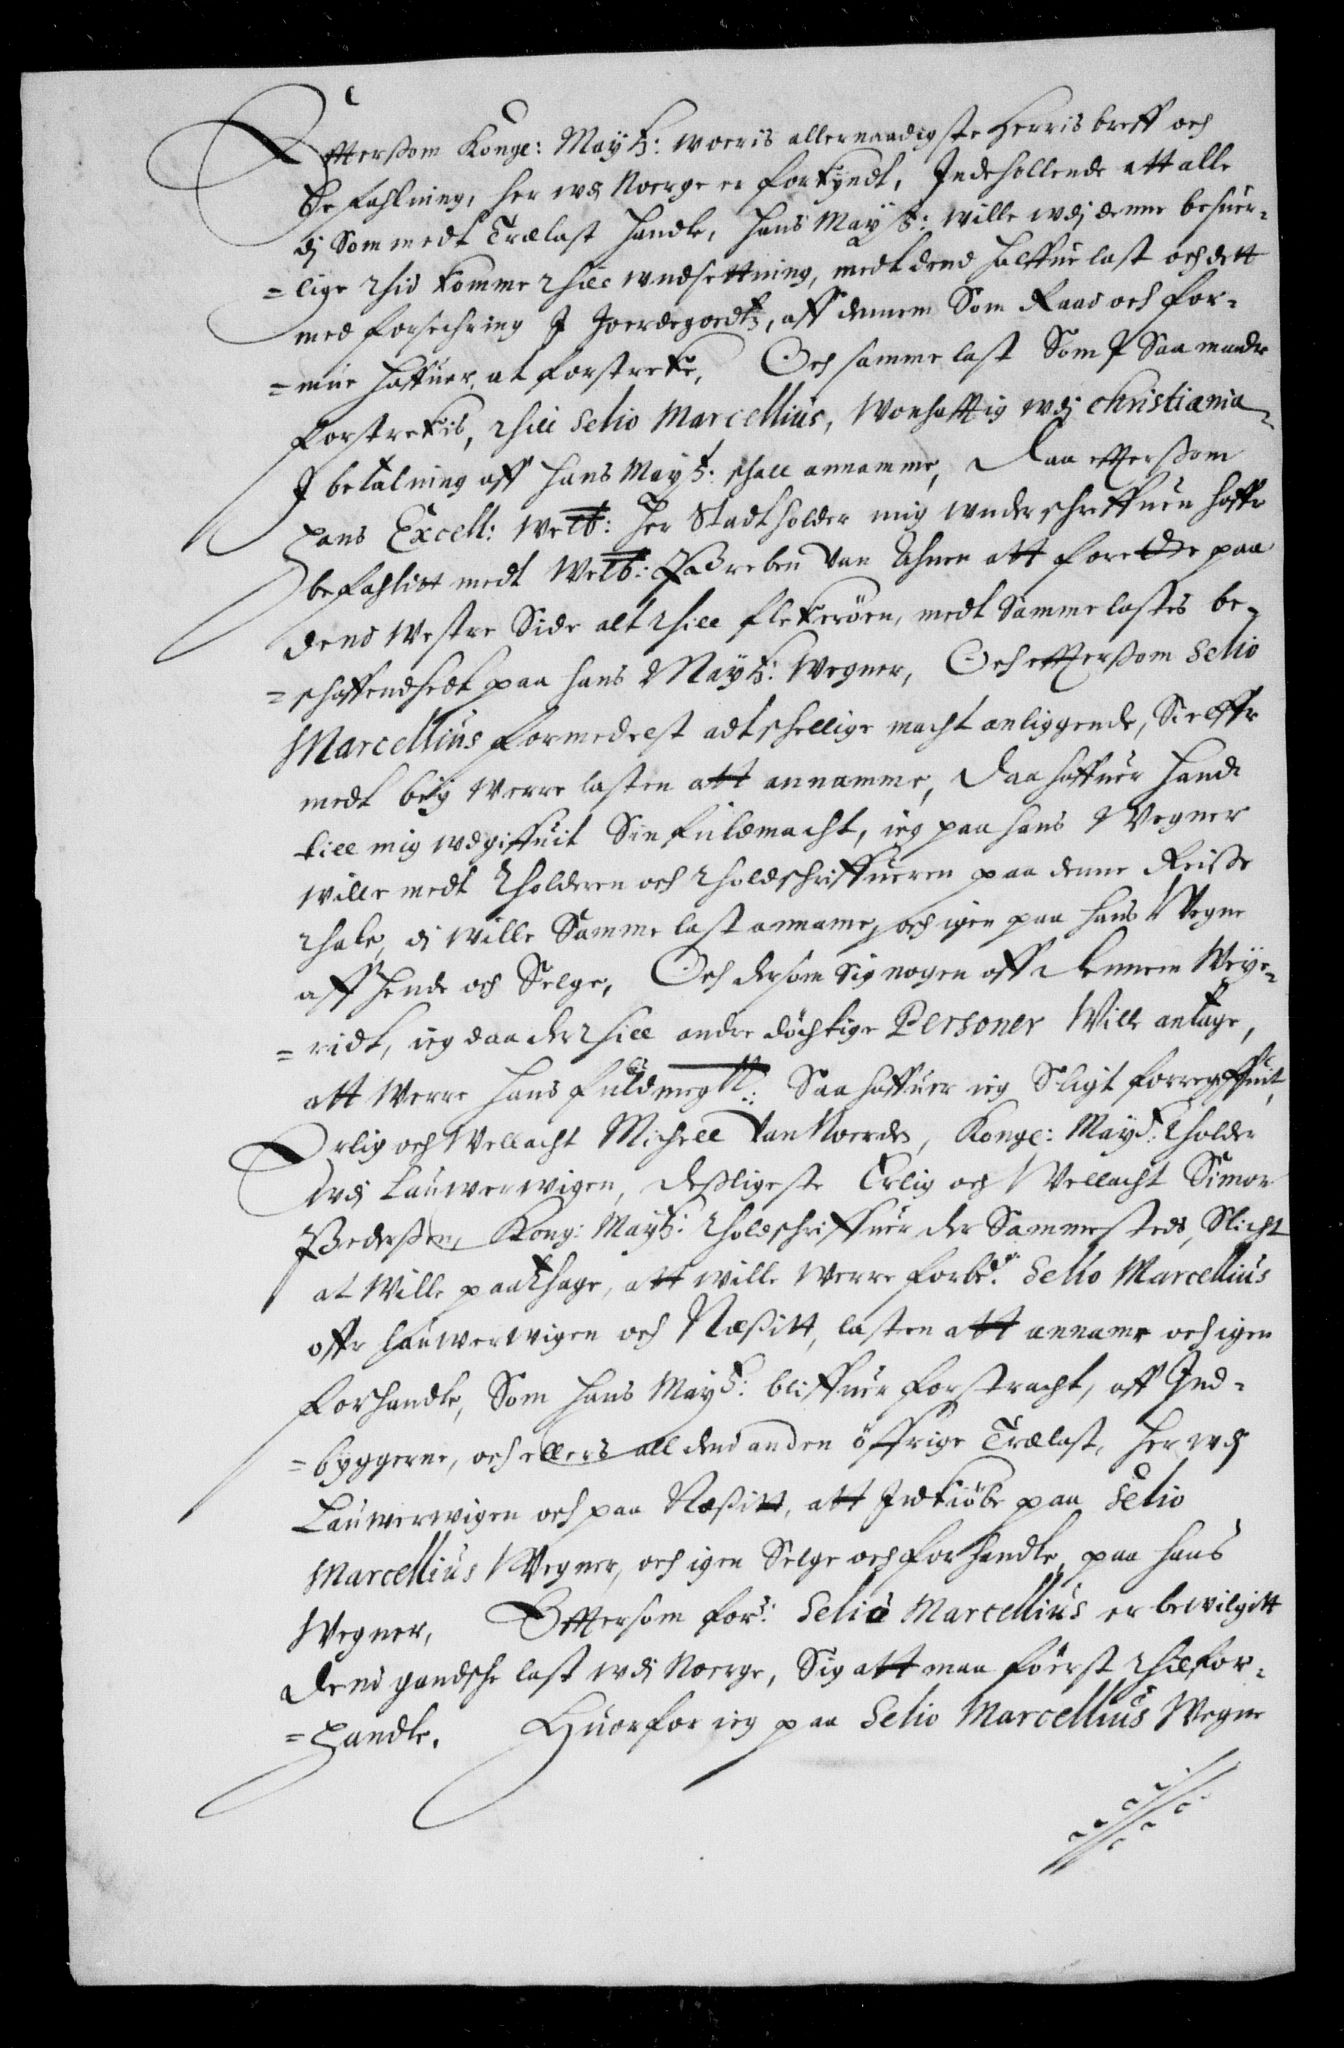 Efftersom Konge: Maytz: woeris allernaadigste Herris breff och
Befahlning, her udj Noerge er forkyndt, Indehollende att alle
dj Som medt Trælast handle, hans Maytz: wille udj denne besuer-
=lige thid komme thill undsettning, medt dend halffue last och dett
med forsechring J Joerdegoedtz, aff dennem Som Raad och for-
=mue haffuer at forstreke, Och samme last Som J Saa maade
forstrekis, thill Selio Marcellius, Wonhafftig udj Christiania
J betalning aff hans Maytz: schall annamme, Daa effterssom
Hans Excell: Welb: Her Stadtholder mig underschreffuen haffr
befahlitt medt Welb: Preben Van Ahnen att forette paa
dend Westre Side alt thill Flekerøen, medt Samme lastes be-
=schaffendhedt paa hans Maytz: Wegner, Och effterssom Selio
Marcellius formedelst adtschellige macht anliggende, Sielffr
medt blig Werre lasten att annamme, Daa haffuer hand
till mig udgiffuit Sin fuldmacht, ieg paa hans Wegner
wille medt tholderen och tholdschriffueren paa denne Reisse
thale, dj wille Samme last anname, och igen paa hans Wegne
aff Hende och Selge, Och dersom Sig nogen aff dennem Weye-
=ridt, ieg daa der thill andre döchtige Personer Wille antage,
att Werre hans fuldmegtt: Saa haffuer ieg Sligt forregiffuit,
Erlig och Vellacht Michell Van Noerde, Konge: Maytz: tholder
Udj Lauwerwigen, desligeste Erlig och Vellacht Simon
Pederssen, Kong: Maytz: tholdschriffuer der Sammesteds, Slicht
at Wille paathage, att wille Werre forbe: Selio Marcellius
offr Lauwerwigen och Næssitt, lasten att anname och igen
forhandle, Som hans Maytz: bliffuer forstracht, aff Ind-
=byggerne, och ellers all dend anden öffrige Trælast, her udj
Lauwerwigen och paa Næssitt, att Indkiöbe paa Selio
Marcellius Wegner, och igen Selge och forhandle, paa hans
Wegner, Efftersom fors: Selio Marcellius er bewilgitt
dend gandsche last udj Noerge, Sig att maa föerst thilfor-
=Handle. Huorfor ieg paa Selio Marcellius Wegne